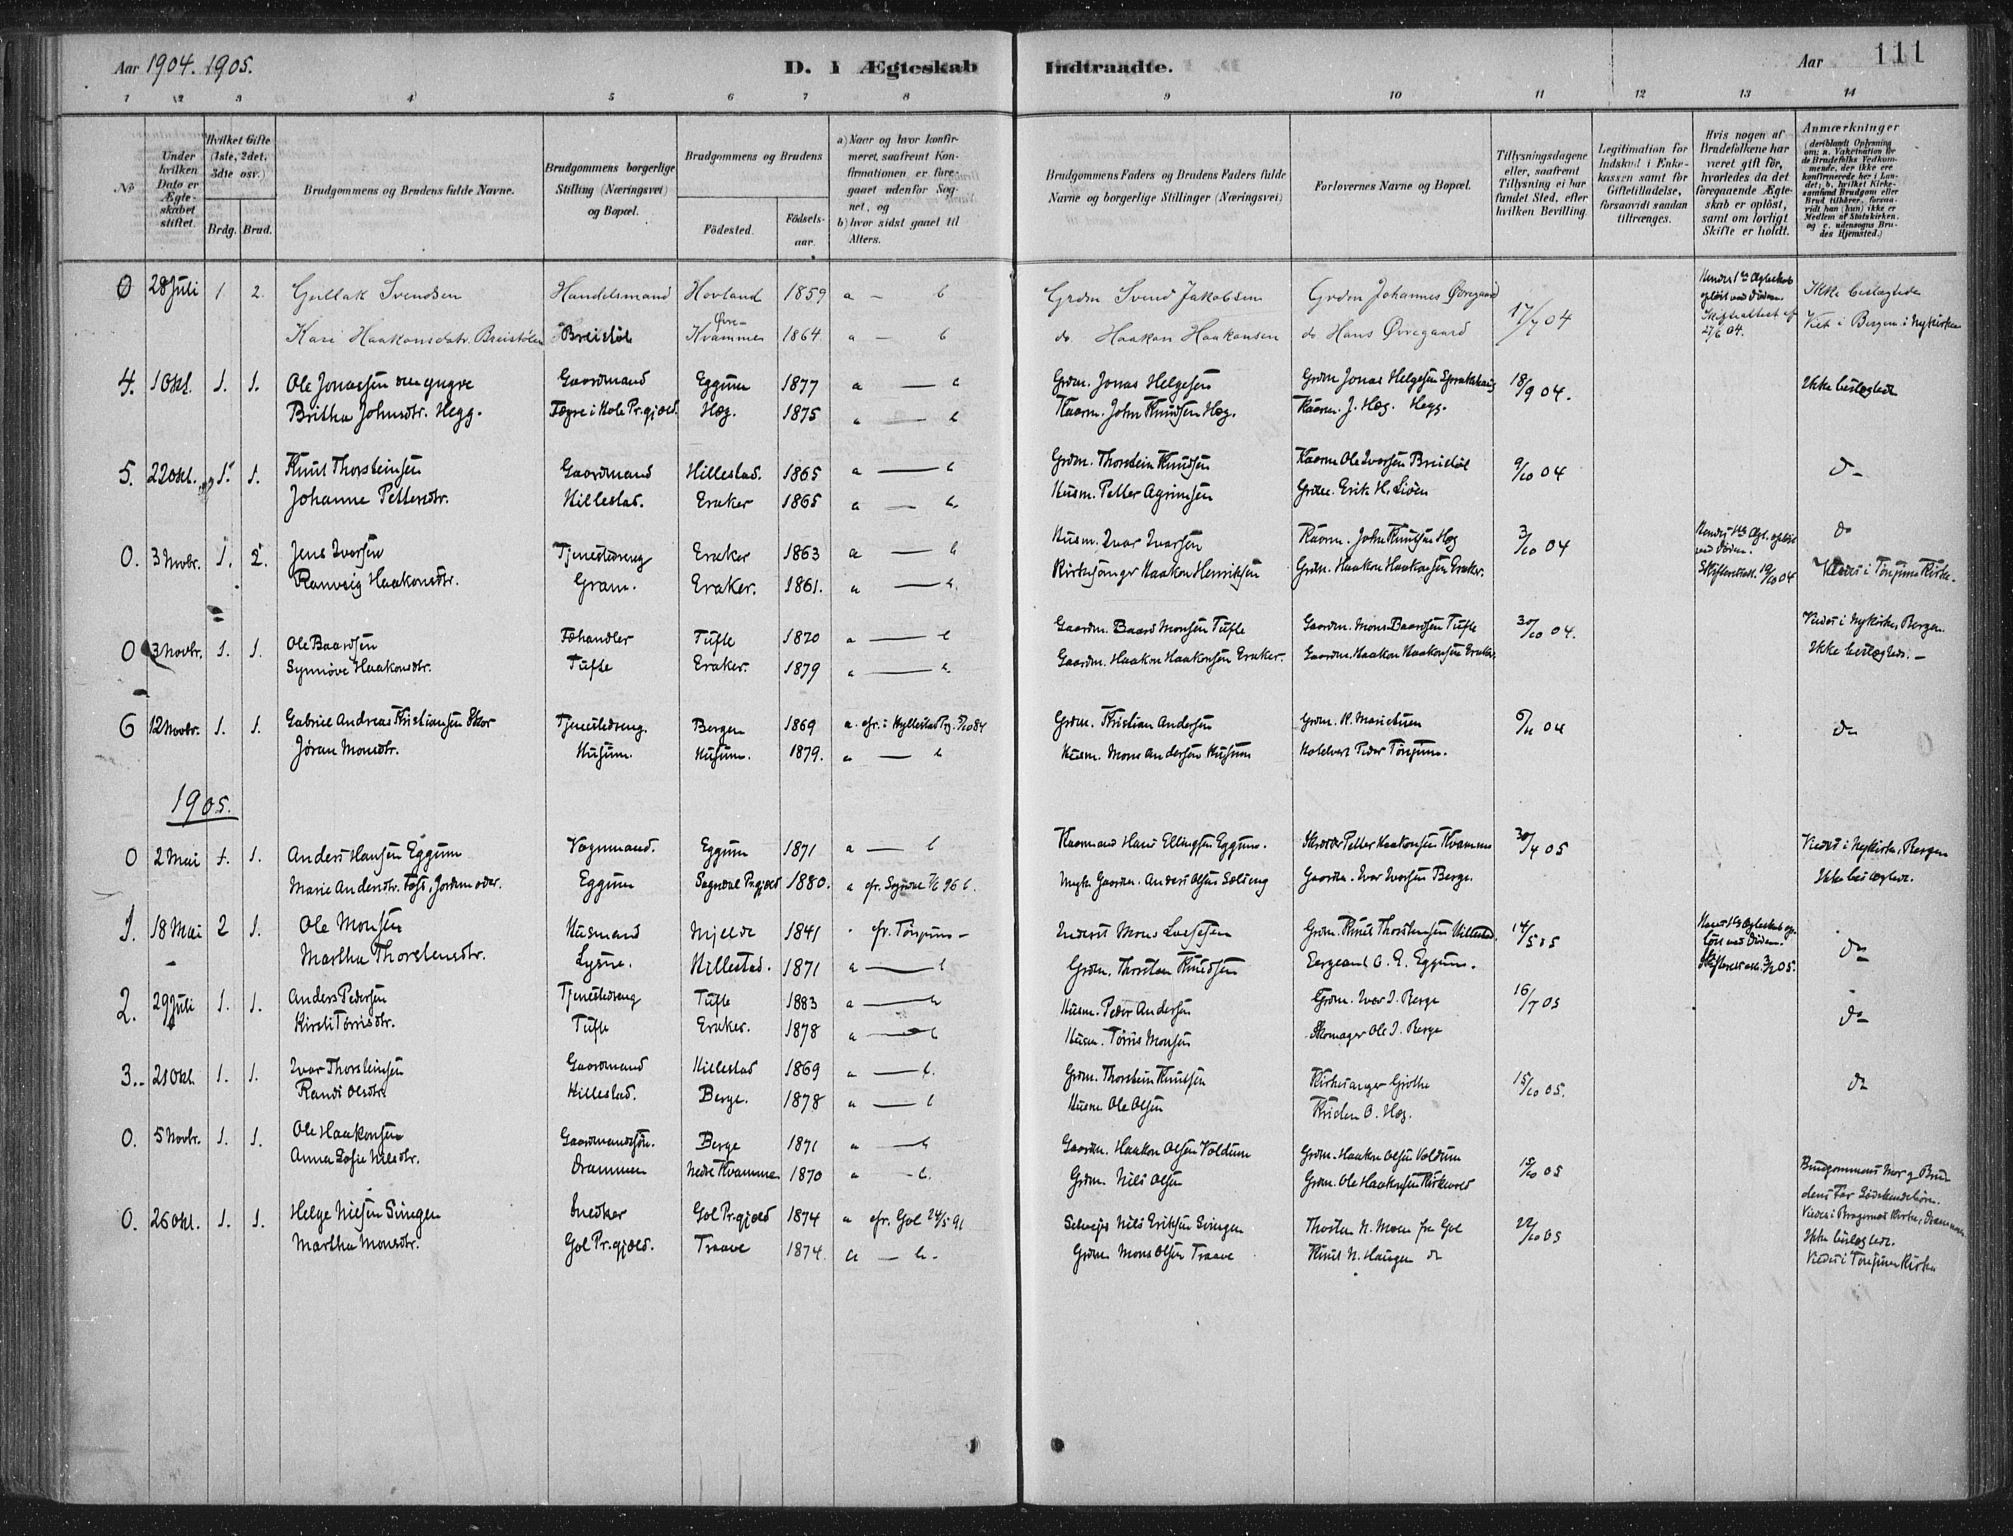 Aar 1904. 1905.
D. I Ægteskab Indtraadte.
Aar
111
1 2 3 4 5 6 7 8 9 10 11 12 13 14
No
Under hvilken Dato er Ægteskabet stiftet.
Hvilket Gifte (1ste, 2det, 3dte osv.)
Brdg. Brud.
Brudgommens og Brudens fulde Navne.
Brudgommens borgerlige Stilling (Næringsvei) og Bopæl.
Brudgommens og Brudens
Födested. Födsels-aar.
a) Naar og hvor konfirmeret, saafremt Konfirmationen er foregaaet udenfor Sognet, og
b) hvor sidst gaaet til Alters.
Brudgommens Faders og Brudens Faders fulde Navne og borgerlige Stillinger (Næringsvei)
Forlovernes Navne og Bopæl.
Tillysningsdagene eller, saafremt Tillysning ei har fundet Sted, efter hvilken Bevilling.
Legitimation for Indskud i Enkekassen samt for Giftetilladelse, forsaavidt saadan tiltrænges.
Hvis nogen af Brudefolkene har været gift för, hvorledes da det foregaaende Ægteskab er oplöst, samt om lovligt Skifte er holdt.
Anmærkninger
(deriblandt Oplysning om: a. Vakcination for de Brudefolks Vedkommende, der ikke ere konfirmerede her i Landet; b. hvilket Kirkesamfund Brudgom eller Brud tilhörer, forsaavidt han (hun) ikke er Medlem af Statskirken, og c. udensogns Brudes Hjemsted.)
0 28 Juli 1 2. Gullak Svendsen Handelsmand Hovland 1859 a — b Grdm Svend Jakobsen Grdm Johannes Øvregaard 17/7 04 Ikke beslægtede
Kari Haakonsdatr. Breistølen Breistøl Øvre-Kvammen 1864 a — b do Haakon Haakonsen do Hans Øvregaard Viet i Bergen i Nykirken
4. 1 Okt. 1. 1. Ole Jonassen den yngre Gaardmand Eggum 1877 a — b Grdm. Jonas Helgesen Grdm Jonas Helgesen 18/9 04. Ikke beslægtede
Britha Johnsdtr. Hegg. Hæg. 1875 a — b Kaarm. John Knudsen Hæg. Kaarm. J. Hæg. Hegg.
5. 22 Okt. 1. 1. Knut Thorsteinsen Gaardmand Hillestad. 1865 a — b Grdm. Thorstein Knudsen Kaarm Ole Ivarsen Breistøl 9/10 04 do
Johanne Pettersdtr. Hillestad. Eraker 1865 a — b. Husm. Petter Agrimsen Grdm. Erik H. Liøen
0. 3 Novbr. 1. 2. Jens Ivarsen Tjenestedreng Eraker 1863 a — b Husm. Ivar Ivarsen Kaarm. John Knutsen Hæg 3/10 04 Hendes 1ste Ægt. opløst ved Døden. do
Ranveig Haakonsdtr. Gram. Eraker. 1861. a — b. Kirkesanger Haakon Henriksen Grdm. Haakon Haakonsen Eraker. Skifteattest. 19/10 04 Viede i Tønjums Kirke.
0 3 Novbr. 1. 1. Ole Baardsen Fæhandler Tufte 1870 a — b Gaardm. Baard Monsen Tufte Gaardm. Mons Baardsen Tufte 30/10 04. Viedes i Nykirken, Bergen.
Synnøve Haakonsdtr. Tufte Eraker. 1879 a — b Gaardm. Haakon Haakonsen Eraker. Gaardm. Haakon Haakonsen Eraker. Ikke beslægtede. –
6 12 Novbr. 1. 1. Gabriel Andreas Kristiansen Skor Tjenestedreng. Bergen 1869 a. cfr. i Hyllestad Grdm. Kristian Andersen 6/11 04 do
Jøran Monsdtr. Husum. Husum. 1879. a — b Husm. Mons Andersen Husum Peder Tønjum.
1905.
0 2 Mai 1. 1. Anders Hansen Eggum Vognmand. Eggum 1871 a — b Kaarmand Hans Ellingsen Eggum. Skræder Petter Haakonsen Kvamme 30/4 05 Viedes i Nykirken, Bergen
Marie Andersdtr. Eggum Sogndal Pr.gjeld 1880. a cfr. Sogndal b. Gaardm. Anders Olsen Gaardm. Ivar Ivarsen Berge. Ikke beslægtede.
1. 18 Mai 2 1. Ole Monsen Husmand Mjelde 1841 cfr. Tønjum – Mons Grdm. Knut Thorsteinsen Hillestad. 14/5 05 do
Martha Thorstensdtr. Lysne. Hillestad. 1871 a — b Grdm. Thorsten Knudsen Sergeant O. E. Eggum. Skifteretsatt. 3/2 05.
2. 29 Juli 1. 1. Anders Pedersen Tjenestedreng Tufte 1883 a — b Husm. Peder Andersen Grdm. Ivar I. Berge 16/7 05 do
Kirsti Tørrisdtr. Tufte Eraker. 1878 a — b Husm. Tørris Monsen Skomager Ole I. Berge
3. 21 Okt. 1. 1. Ivar Thorsteinsen Gaardmand Hillestad 1869 a — b. Grdm. Thorstein Knutsen Kirkesanger Grøthe 15/10 05. do
Randi Olsdtr. Hillestad. Berge. 1878 a — b Husm Ole Olsen O. Hæg.
0. 5 Novbr. 1. 1. Ole Haakonsen Gaardmandssøn. Berge 1871 a — b Gaardm. Haakon Olsen Voldum Grdm. Haakon Olsen Voldum 15/10 05
Anna Sofie Nilsdtr. Drammen Nedre Kvamme 1870 a — b. Grdm. Nils Olsen Grdm. Ole Haakonsen Kirkevold Brudgommens Mor og Brudens Far Sødskendebørn. Viedes i Bragernes Kirke, Drammen
0. 26 Okt. 1. 1. Helge Nilsen Snedker Gol Pr.gjeld 1874 a cfr. Gol 24/5 91 Selveier Nils Eriksen Thosten N. Moen fra Gol 22/10 05 Ikke beslægtede.
Martha Monsdtr. Gol Pr.gjeld. Traave 1874. a — b. Grdm Mons Olsen Traave Knut N. Haugen do Viedes i Tønjum Kirke